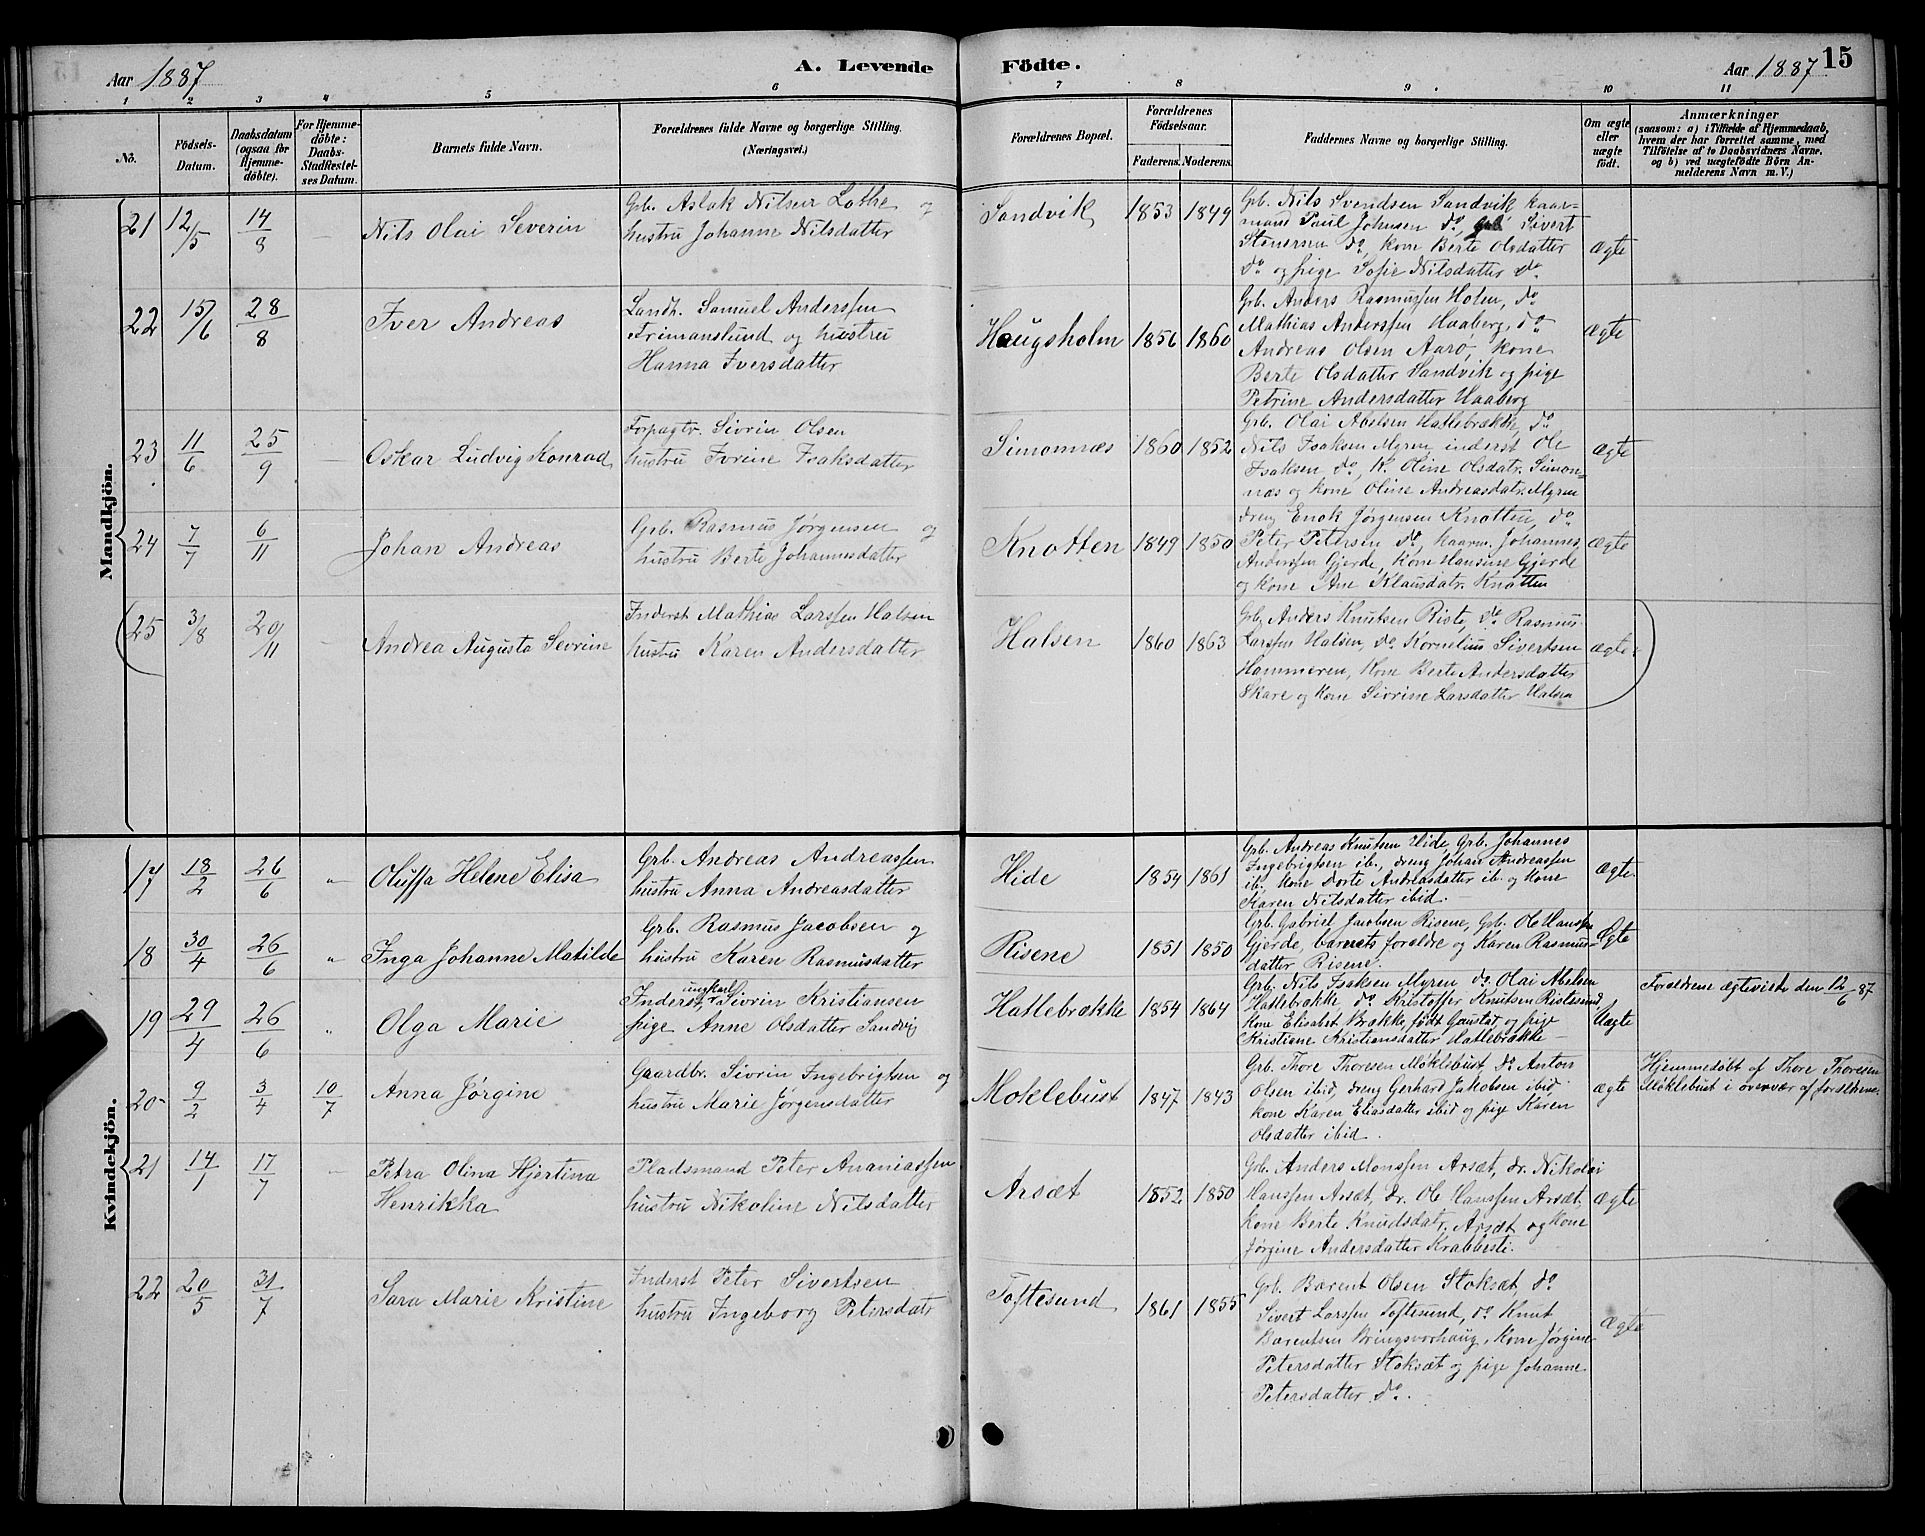 Aar 1887
A. Levende
Födte.
Aar 1887
15
1 2 3 4 5 6 7 8 9 10 11
No.
Födsels-
Datum.
Daabsdatum
(ogsaa for
Hjemme-
döbte).
For Hjemme-
döbte:
Daabs-
Stadfæstel-
ses Datum.
Barnets fulde Navn.
Forældrenes fulde Navne og borgerlige Stilling.
(Næringsvei.)
Forældrenes Bopæl.
Forældrenes
Födselsaar.
Faderens. Moderens.
Faddernes Navne og borgerlige Stilling.
Om ægte
eller
uægte
födt.
Anmærkninger
(saasom: a) i Tilfælde af Hjemmedaab,
hvem der har forrettet samme, med
Tilföielse af to Daabsvidners Navne,
og b) ved uægtefödte Börn An-
melderens Navn m. V.)
Mandkjön.
21 12/5 14/8 — Nils Olai Severin
Grb. Aslak Nilsen Lothe og
hustru Johanne Nilsdatter
Sandvik 1853 1849
Grb. Nils Svendsen Sandvik kaar-
mand Paul Johnsen do, Grb Sivert
Stenersen do, kone Berte Olsdatter
do og pige Sofie Nilsdatter do
Ægte
22 15/6 28/8 Iver Andreas
Landh. Samuel Anderssen
Frimanslund og hustru
Hanna Iversdatter
Haugsholm 1856 1860
Grb. Anders Rasmussen Holen, do
Mathias Anderssen Haaberg, do
Andreas Olsen Aarø, kone
Berte Olsdatter Sandvik og pige
Petrine Andersdatter Haaberg
Ægte
23 11/6 25/9 — Oskar Ludvig Konrad
Forpagtr. Sivrin Olsen
hustru Ivrine Isaksdatter
Simonnæs 1860 1852
Grb. Olai Abelsen Hatlebrække, do
Nils Isaksen Myren, inderst Ole
Isaksen do, K. Oline Olsdatr. Simon-
næs og kone Oline Andreasdatr. Myren
ægte
24 7/7 6/11 Johan Andreas
Grb. Rasmus Jørgensen og
hustru Berte Johannesdatter
Knotten 1849 1850
dreng Enok Jørgensen Knotten, do
Peter Petersen do, kaarm. Johannes
Anderssen Gjerde, kone Hansine Gjerde
og kone Ane Klausdatr. Knotten
ægte
25 3/8 20/11 — Andrea Augusta Sevrine
Inderst Mathias Larssen Halsen
hustru Karen Andersdatter
Halsen 1860 1863
Grb. Anders Knutsen Riste, do Rasmus
Larssen Halsen, do Kornelius Sivertsen
Hammeren, Kone Berte Andersdatter
Skare og Kone Sivrine Larsdatter Halsen
ægte
Kvindekjön.
17 18/2 26/6 " Oluffa Helene Elisa
Grb. Andreas Andreassen
hustru Anna Andreasdatter
Hide 1854 1861
Grb. Andreas Knutsen Hide, Grb. Johannes
Ingebrigtsen ib., dreng Johan Andreassen
ib. kone Dorte Andreasdatter ib. og kone
Karen Nilsdatter ibid. —
Ægte
18 30/4 26/6 " Inga Johanne Matilde
Grb. Rasmus Jacobsen og
hustru Karen Rasmusdatter
Risene 1851 1850
Grb. Gabriel Jacobsen Risene, Grb. Ole Hanssen
Gjerde, barnets forældre og Karen Rasmus-
datter Risene.
Ægte
19 29/4 26/6 " Olga Marie
Inderst, ungkarl Sivrin Kristiansen
pige Anne Olsdatter Sandvig
Hatlebrække 1854 1864
Grb. Nils Isaksen Myren do Olai Abelsen
Hatlebrække do Kristoffer Knutsen Ristesund
kone Elisabet Brække, født Gaustad, og pige
Kristiane Kristiansdatter Hatlebrække —
Uægte
Forældrene ægteviede den 12/6 87
20 9/2 3/4 10/7 Anna Jørgine
Gaardbr. Sivrin Ingebrigtsen og
hustru Marie Jørgensdatter
Moklebust 1847 1843
Grb. Thore Thoresen Møklebust do Anton
Olsen ibid, dreng Gerhard Jakobsen ibid,
kone Karen Eliasdatter ibid og pige Karen
Olsdatter ibid.
ægte
Hjemmedøbt af Thore Thoresen
Møklebust i overvær af forældrene.
21 14/1 17/7 — Petra Olina Hjertina
Henrikka
Pladsmand Peter Ananiassen
hustru Nikoline Nilsdatter
Arsæt 1852 1850
Grb. Anders Monssen Arsæt, do. Nikolai
Hanssen Arsæt, do. Ole Hanssen Arsæt,
kone Berte Knudsdatr. Arsæt og kone
Jørgine Andersdatter Krabbesti.
ægte
22 20/5 31/7 Sara Marie Kristine
Inderst Peter Sivertsen
hustru Ingeborg Petersdatr
Toftesund 1861 1855
Grb. Barent Olsen Stoksæt, do
Sivert Larssen Toftesund, do Knut
Barentsen Bringsvorhaug, kone Jørgine
Petersdatter Stoksæt og pige Johanne
Petersdatter do.
Ægte